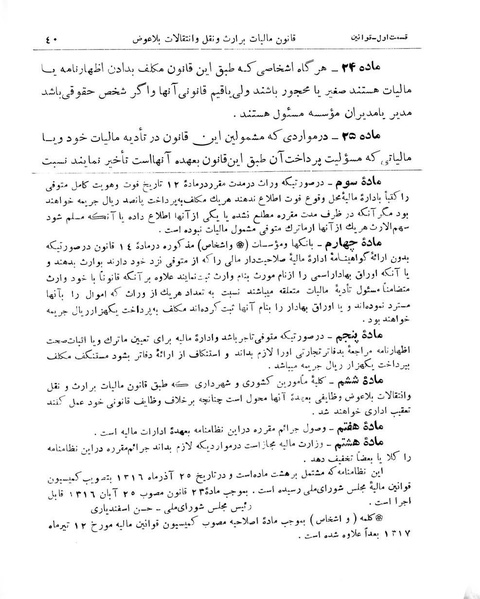 قسمت اول-قوانین
قانون مالیات برارث ونقل وانتقالات بلاعوض
۴۰
ماده ۲۴ ـ هرگاه اشخاصی که طبق این قانون مکلف بدادن اظهارنامه یا
مالیات هستند صغیر یا محجور باشند ولی یاقیم قانونی آنها واگر شخص حقوقی باشد
مدیر یامدیران مؤسسه مسئول هستند .
ماده ۲۵ ـ درمواردی که مشمولین این قانون در تأدیه مالیات خود ویا
مالیاتی که مسؤلیت پرداخت آن طبق این قانون بعهده آنهااست تأخیر نمایند نسبت
مادۀ سوم ـ درصورتیکه وراث درمدت مقرردرمادۀ ۱۲ تاریخ فوت وهویت کامل متوفی
را کتباً بادارۀ مالیۀ محل وقوع فوت اطلاع ندهند هریك مکلف به پرداخت پانصد ریال جریمه خواهند
بود مگر آنکه در ظرف مدت مقرره مطلع نشده یا یکی از آنها اطلاع داده یا آنکه مسلم شود
سهم الارث هریك از آنها ازماترك متوفی مشمول مالیات نبوده است .
مادۀ چهارم ـ بانکها ومؤسسات (✽ واشخاص) مذکوره درمادۀ ۱۴ قانون درصورتیکه
بدون ارائۀ گواهینامۀ ادارۀ مالیۀ صلاحیت دار مالی را که از متوفی نزد خود دارند بوارث بدهند و
یا آنکه اوراق بهاداراسمی را ازنام مورث بنام وارث ثبت نمایند علاوه بر آنکه قانوناً با خود وارث
متضامناً مسئول تأدیۀ مالیات متعلقه میباشند نسبت به تعداد هریك از وراث که اموال را بآنها
مسترد نموده‌اند و یا اوراق بهادار را بنام آنها ثبت کرده‌اند مکلف به پرداخت یکهزارریال جریمه
خواهند بود .
مادۀ پنجم ـ درصورتیکه متوفی تاجرباشد وادارۀ مالیه برای تعیین ماترك ویا اثبات صحت
اظهارنامه مراجعۀ بدفاتر تجارتی اورا لازم بداند و استنکاف از ارائۀ دفاتر بشود مستنکف مکلف
بپرداخت یکهزار ریال جریمه میباشد .
مادۀ ششم ـ کلیۀ مأمورین کشوری و شهرداری که طبق قانون مالیات بر ارث و نقل
وانتقالات بلاعوض وظایفی بعهدۀ آنها محول است چنانچه برخلاف وظایف قانونی خود عمل کنند
تعقیب اداری خواهند شد .
مادۀ هفتم ـ وصول جرائم مقرره دراین نظامنامه بعهدۀ ادارات مالیه است .
مادۀ هشتم ـ وزارت مالیه مجازاست درمواردیکه لازم بداند جرائم مقرره دراین نظامنامه
را کلا یا بعضاً تخفیف دهد .
این نظامنامه که مشتمل برهشت ماده‌است و درتاریخ ۲۵ آذرماه ۱۳۱۶ بتصویب کمیسیون
قوانین مالیۀ مجلس شورای ملی رسیده است . بموجب مادۀ ۲۳ قانون مصوب ۲۵ آبان ۱۳۱۶ قابل
اجرا است .
رئیس مجلس شورای ملی ـ حسن اسفندیاری
✽کلمه ( و اشخاص ) بموجب مادۀ اصلاحیه مصوب کمیسیون قوانین مالیه مورخ ۱۲ تیرماه
۱۳۱۷ بعداً علاوه شده است .